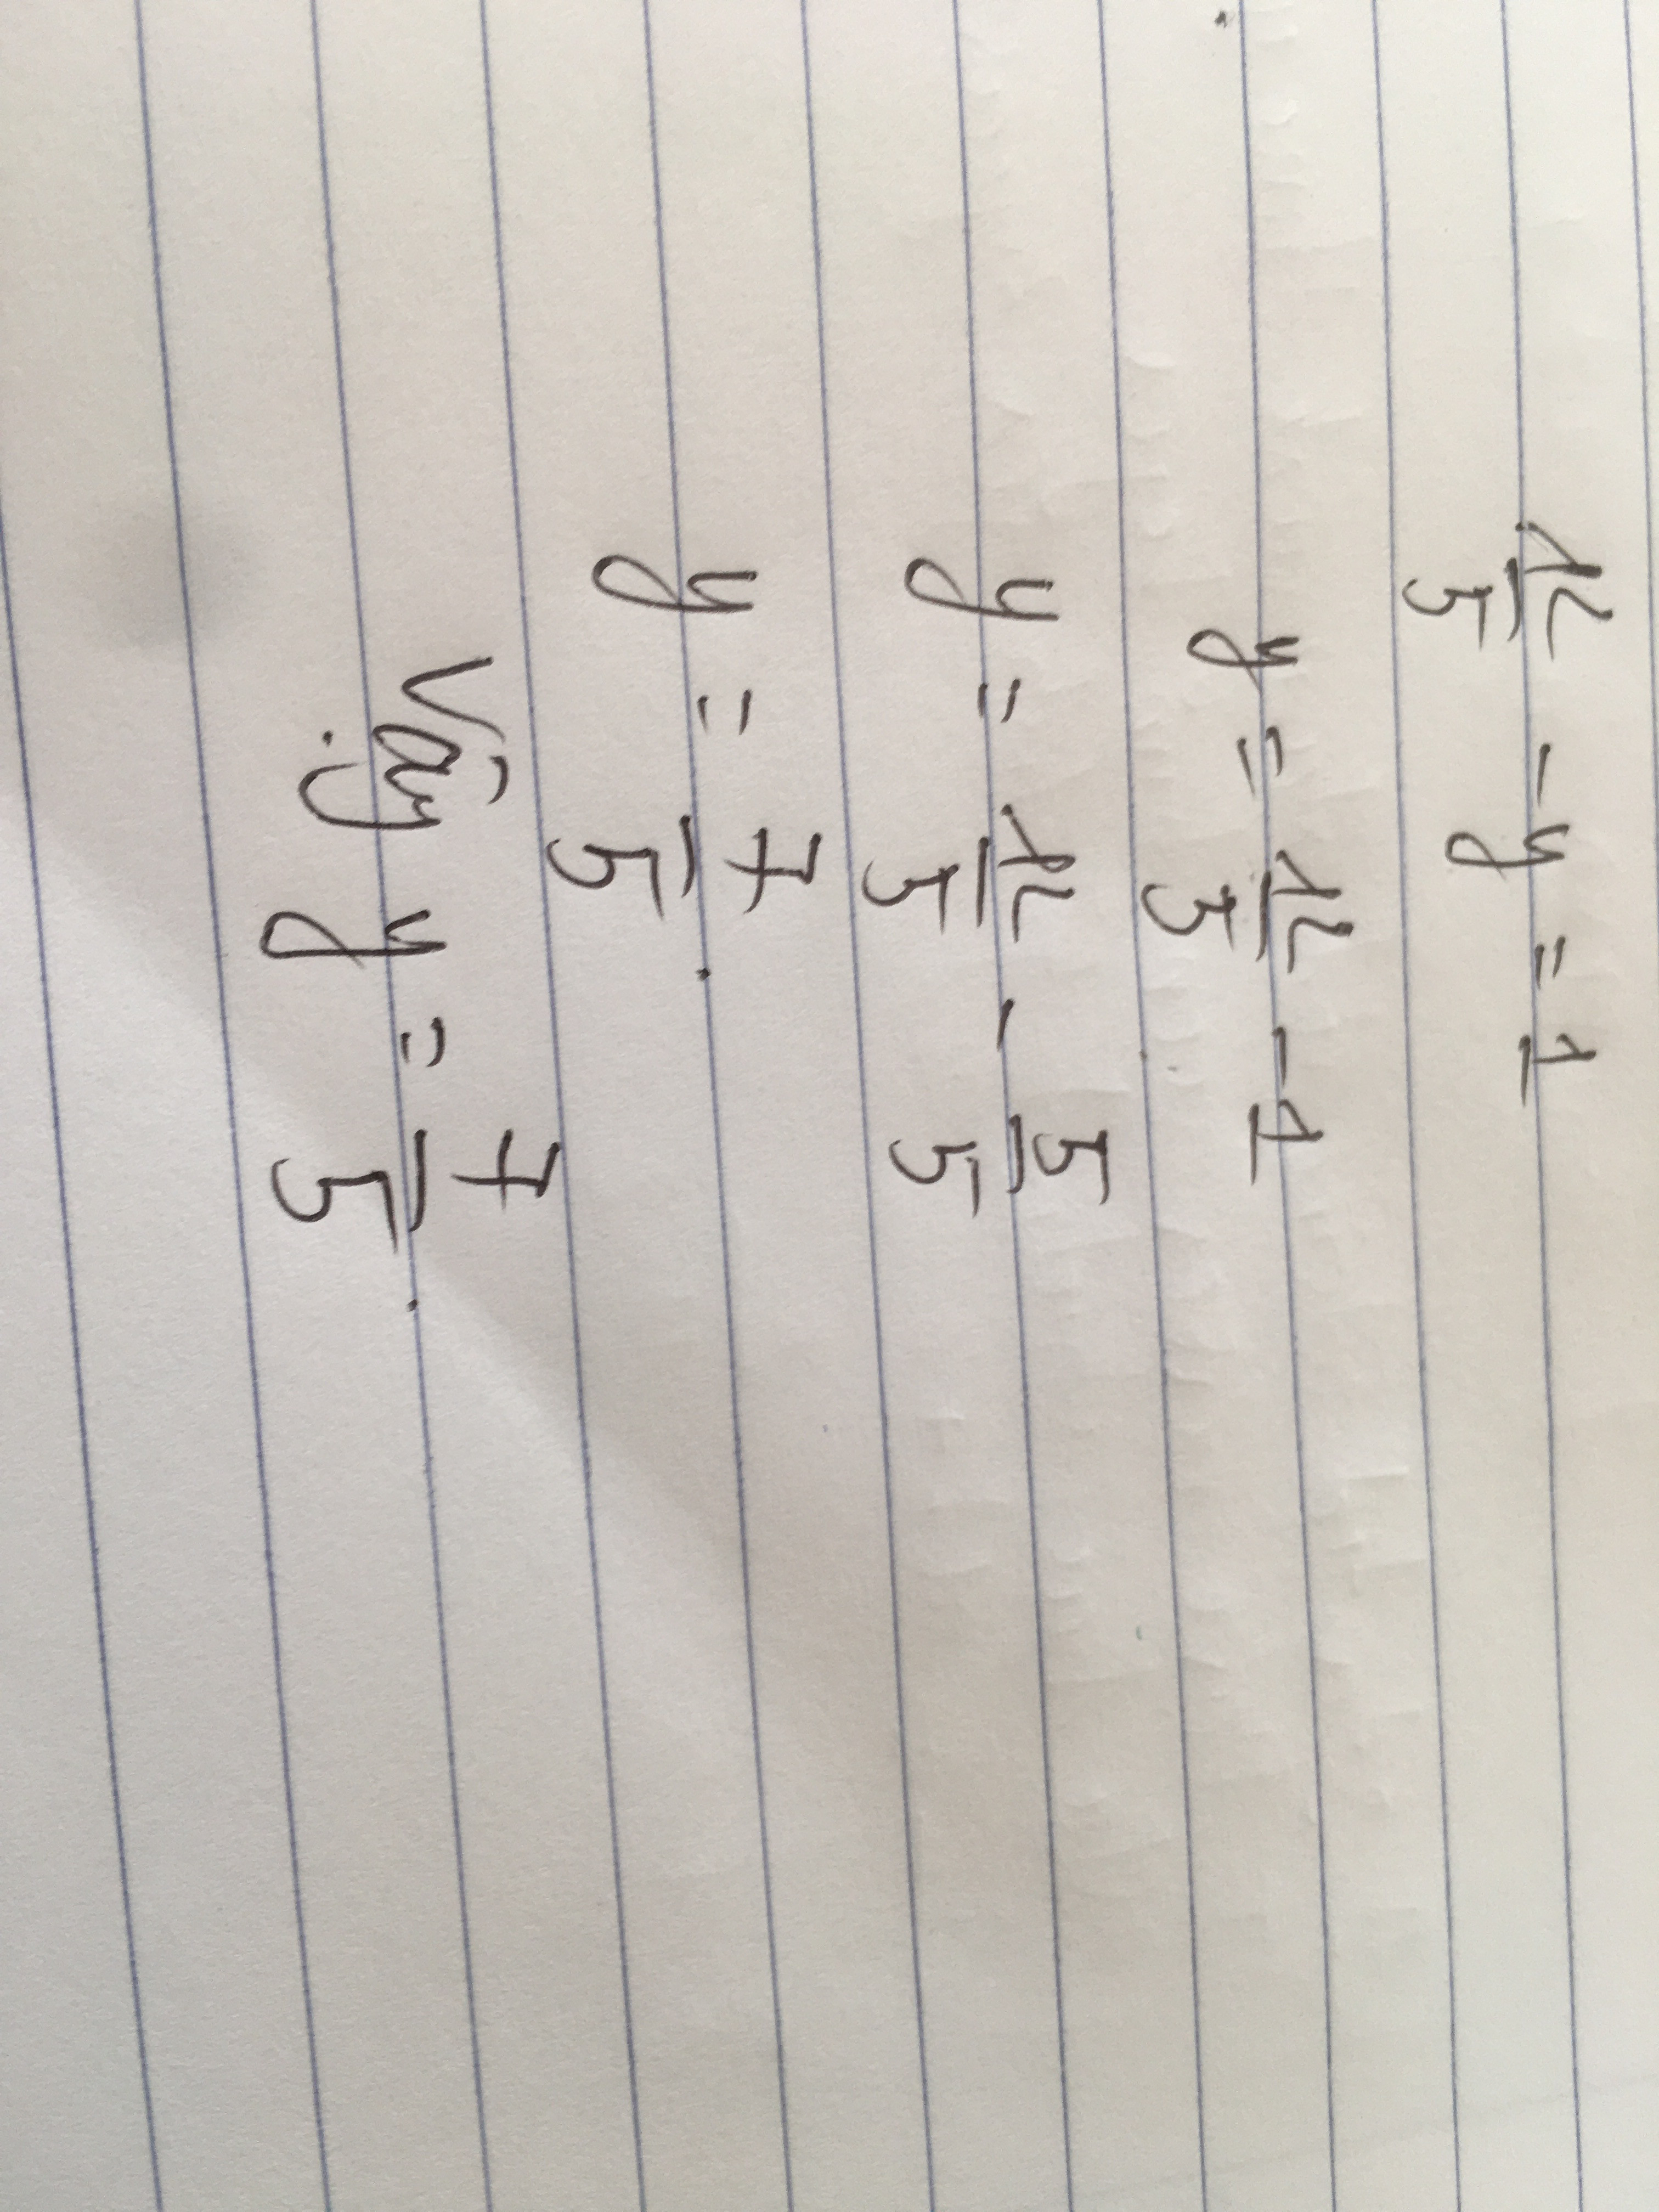 12/5 - y = 1
y = 12/5 - 1
y = 12/5 - 5/5
y = 7/5.
Vậy y = 7/5.